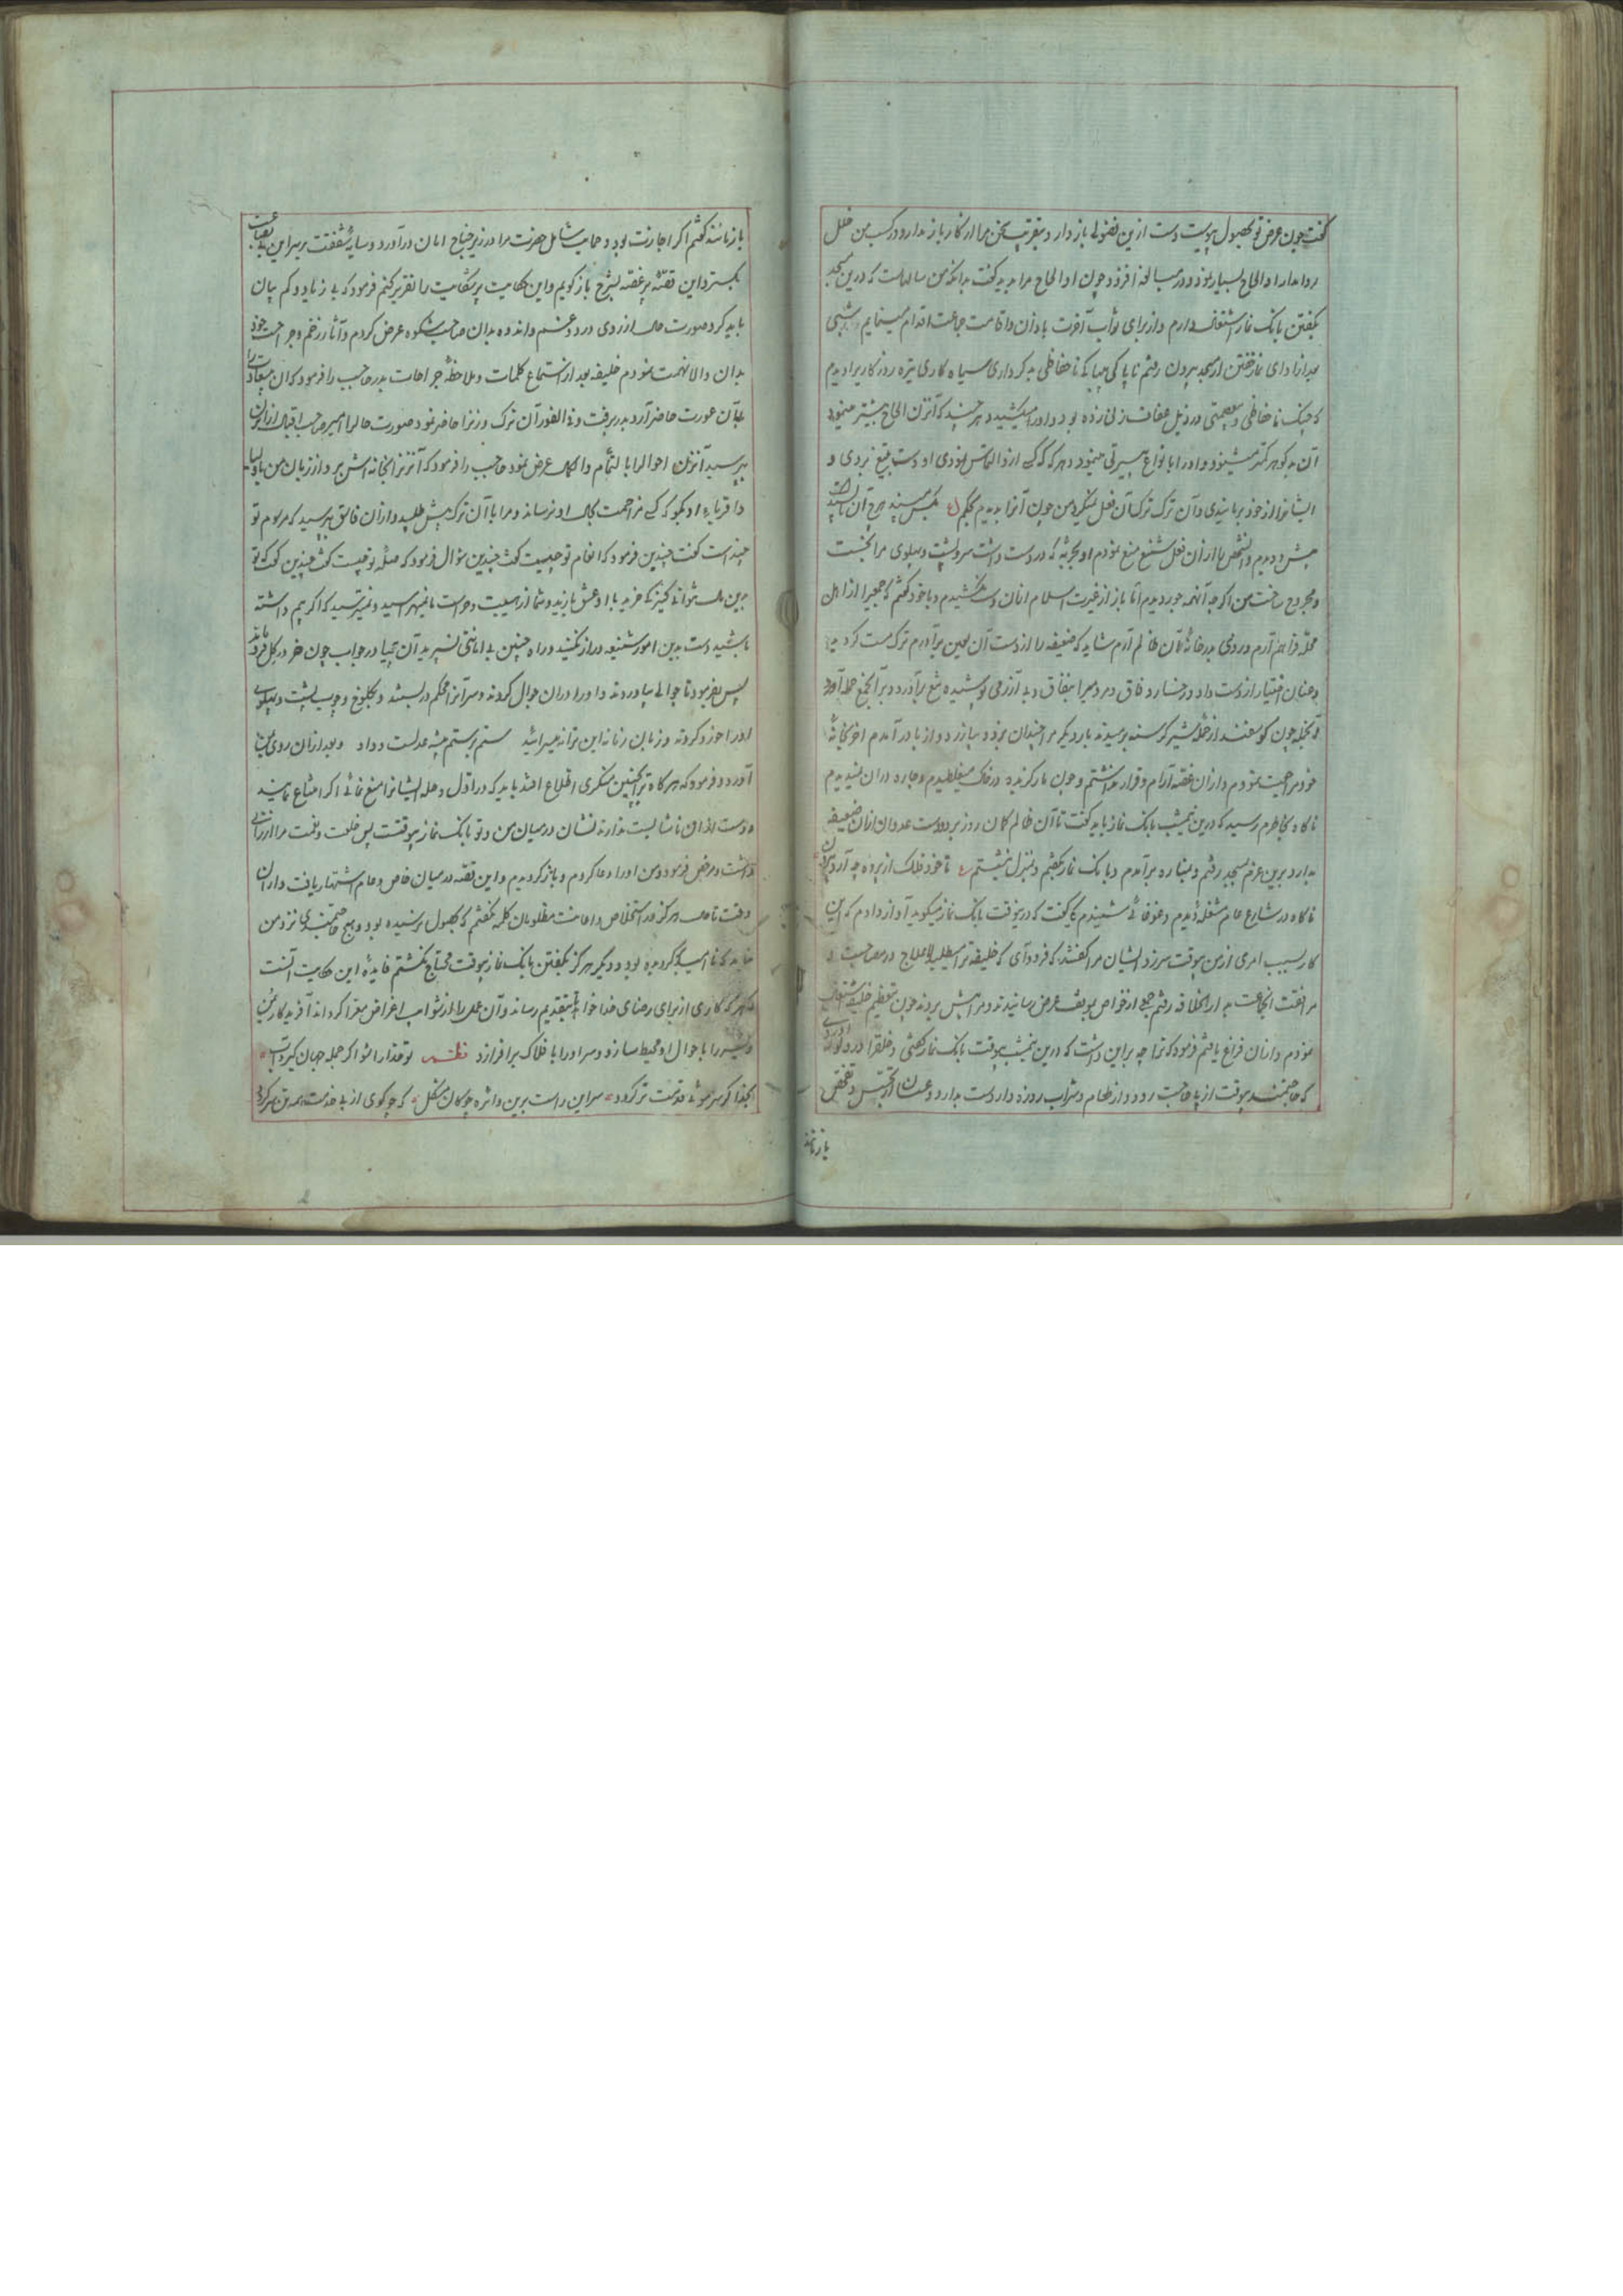 گفت چون غرض تو بحصول پیوست دست ازین فضولی باز دار و بتقریب سخن مرا از کار باز مدار و در کسب من خلل
روا مدار او الحاح بسیار نمود و در مبالغه افزود چون او الحاح مرا بدید گفت بدانکه من سالهاست که درین مسجد
بگفتن بانک نماز اشتغال دارم و از برای ثواب آخرت باذان و اقامت جماعت اقدام مینمایم شبی
بعد از ادای نماز خفتن از مسجد بیرون رفتم ناپاکی بیباکی ناحفاظی بدکرداری سیاه کاری تیره روزگاریرا دیدم
که چنک ناحفاظی و بیعصمتی در ذیل عفاف زنی زده بود و او را میکشید و هر چند که آن زن الحاح بیشتر مینمود
آن بدگوهر کمتر میشنود و او را بانواع بیسیرتی مینمود و هر که که کسی ازو التماس نمودی او دست بتیغ بردی و
ایشانرا از خود برمانیدی و آن ترک ترک آن فعل نمیکرد من چون آنرا بدیدم بحکم
پیش دویدم و آن شخص را از آن فعل شنیع منع نمودم او بحربه که در دست داشت سر و پشت و پهلوی مرا بخست
و مجروح ساخت من اگرچه آنهمه خوردیدم اما باز از غیرت اسلام از آن دست نکشیدم و با خود گفتم که جمعیرا از اهل
محله فراهم آرم و روی بدر خانهٔ آن ظالم آرم شاید که ضعیفه را از دست آن لعین برآورم ترک مست کردیدم
و عنان اختیار از دست داد و رخسار وفاق در و سیر را بنفاق و بی آزرمی پوشیده تیغ برآورد و بر آنجمع حمله آورد
آنجمله چون گوسفند از حمله شیر گرسنه برمیدند بار دیگر مرا چندان بزد و بیازرد و از پا درآمدم آخر بخانهٔ
خود مراجعت نمودم و از آن غصه آرام و قرار نداشتم و چون مار گزیده در خاک میغلطیدم و چاره در آن نمیدیدم
ناگاه بخاطرم رسید که درین نیمشب بانک نماز باید گفت تا آن ظالم گمان روز برد و دست عدوان از آن ضعیفه
بدارد برین عزم بمسجد رفتم و بمناره برآمدم و بانک نماز بگفتم و بمنزل بنشستم تا خود فلک از پرده چه آرد بیرون
ناگاه در شارع عام مشغله دیدم و غوغائی شنیدم که یکی گفت که درینوقت بانک نماز میگوید آواز دادم که این
کار بسبب امری از من بیوقت سرزد ایشان مرا گفتند که فرود آی که خلیفه ترا میطلبد لاعلاج در مصاحبت و
مرافقت آنجماعت بدار الخلافه رفتم جمعی از خواص بموقف عرض رسانیدند و مرا پیش بردند چون بتعظیم خلیفه اشتغال
نمودم و از آن فراغ یافتم فرمود که ترا چه بر این داشت که درین نیمشب بیوقت بانک نماز گفتی و خلقرا در دلو آوردی
که حاجتمند بیوقت از پی حاجت رود و از طعام و شراب روزه دار دست بدارد و عسسان از تجسس و تفحص
بازمانند
بازمانند گفتم اگر اجازت بود و حمایت شامل حضرت مرا در زیر جناح امان درآورد و سایهٔ شفقت بر سر این بی بضاعت
بگسترد این قصّه پر غصه بشرح باز گویم و این حکایت پر شکایت را تقریر کنم فرمود که بی زیاد و کم بیان
باید کرد صورت حال از روی درد و غم و اندوه بدان صاحب شکوه عرض کردم و آثار زخم و جراحت خود
بدان والا نهمت نمودم خلیفه بعد از استماع کلمات و ملاحظهٔ جراحات بدر حاجب را فرمود که آن بیعادت را
با آن عورت حاضر آرد بدر برفت و فی الفور آن ترک و زنرا حاضر نمود صورت حالرا امیر صاحب اقبال از آن زن
بپرسید آن زن احوالرا بالتّمام و الکمال عرض نمود حاجب را فرمود که آن زنرا بخانه اش بر و از زبان من با اولیا
و اقربای او بگو که کسی مزاحمت بحال او نرساند و مرا با آن ترک پیش طلبید و از آن فاسق بپرسید که مرسوم تو
چند است گفت چندین فرمود که انعام تو چیست گفت چندین سؤال فرمود که صلهٔ تو چیست گفت چندین گفت که تو
بدین مال توانی کنیزکی خرید با او عشق بازید و شما از سیاست و حراست ما نمیهراسید و نمیترسید که اگر بیم داشته
باشید دست بدین امور شنیعه دراز نکنید و راه چنین بی امانتی نسپرید آن بیحیا در جواب چون خر در گل فرو ماند
پس بفرمود تا جوالی بیاوردند و او را در آن جوال کردند و سر آنرا محکم دربستند و بکلوخ و چوب پشت و پهلوی
او را خورد کردند و زبان زمانه این ترانه میسرائید ستم بر ستم پیشه عدلست و داد و بعد از آن روی بمن
آورد و فرمود که هرگاه ترا بچنین منکری اطلاع افتد باید که در اوّل وهله ایشانرا منع نمائی اگر امتناع نمایند
و دست از آن ناشایست ندارند نشان در میان من و تو بانک نماز بیوقتست پس خلعت و نعمت مرا ارزانی
داشت و مرخص فرمود و من او را دعا کردم و باز گردیدم و این قصّه در میان خاص و عام اشتهار یافت و از آن
وقت تا حال هرگز در استخلاص و اعانت مظلومان کلمهٔ نگفتم که بحصول نرسیده بود و هیچ حاجتمندی نزد من
نیامد که ناامید گردیده بود و دیگر هرگز بگفتن بانک نماز بیوقت محتاج نگشتم فایدهٔ این حکایت آنست
که هر که کاری از برای رضای خدا خواهد بتقدیم رساند و آن عمل را از شوایب اغراض مبرّا گرداند آفریدگار
و بشر را با جوال او محیط سازد و سر او را با فلاک برافرازد نظم تو خدا را شو اگر جمله جهان گیرد آب
بخدا گر سر موئی قدمت تر گردد سر این راست برین دائره چوگان شکل که چو گوی از پی خدمت همه تن سر گردد